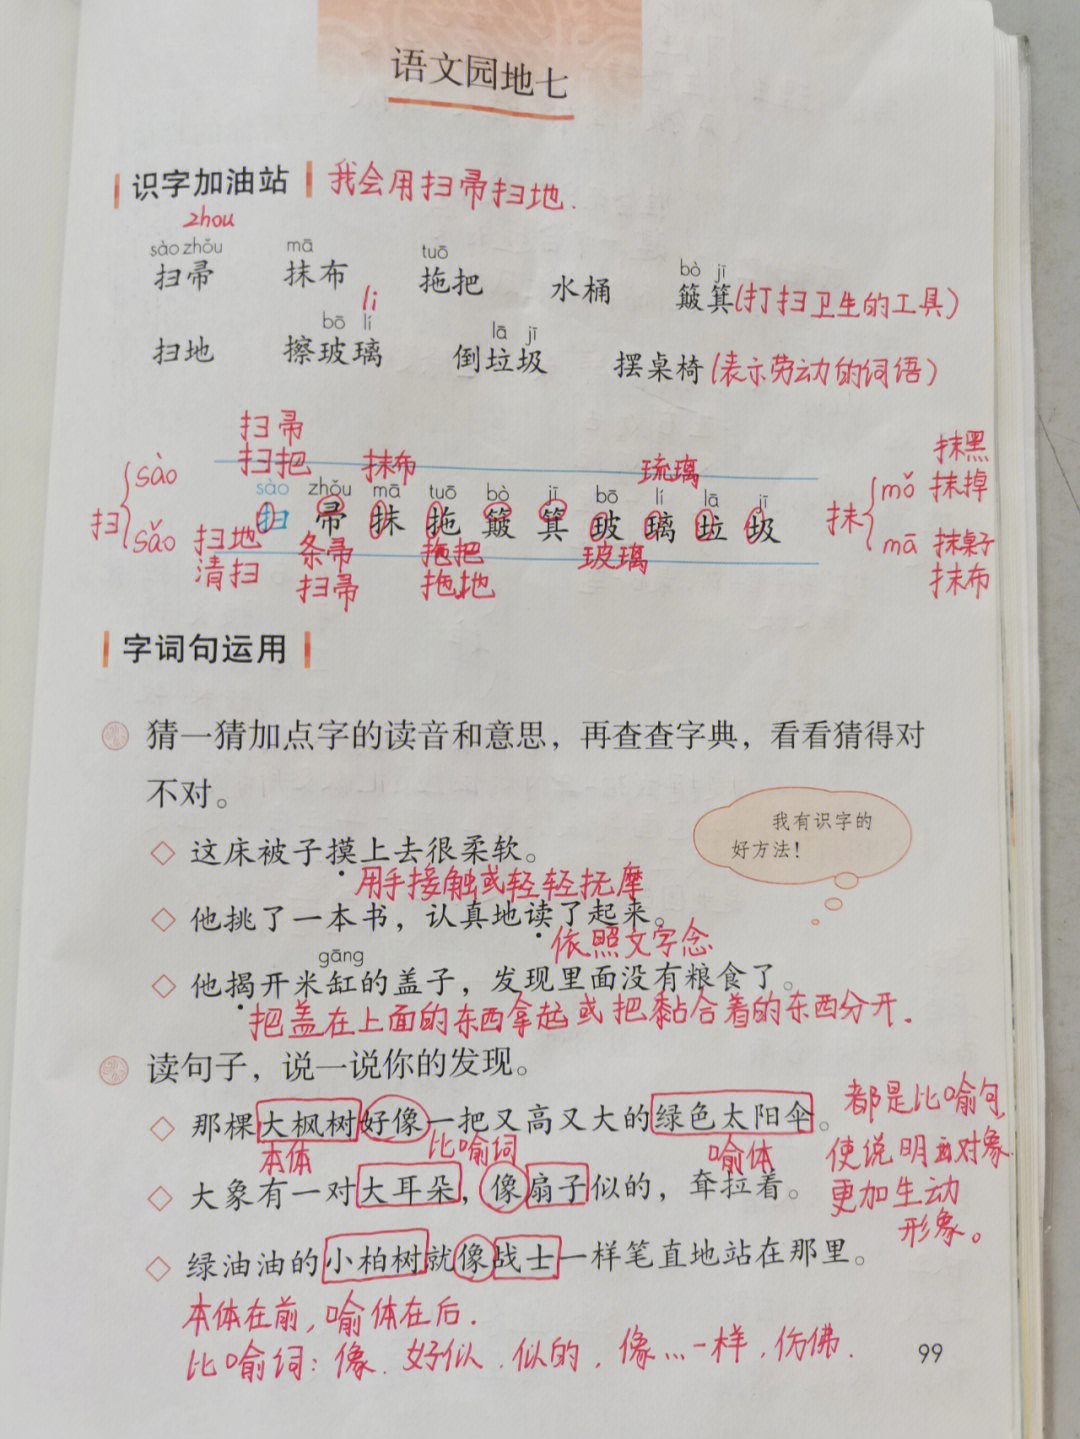 语文园地七
识字加油站 我会用扫帚扫地.
zhou
sào zhǒu mā tuō bò jī
扫帚 抹布 拖把 水桶 簸箕(打扫卫生的工具)
li
bō lí lā jī
扫地 擦玻璃 倒垃圾 摆桌椅(表示劳动的词语)
扫帚
扫把 抹布 琉璃 抹黑
扫 sào mǒ 抹掉
sào zhǒu mā tuō bò jī bō lí lā jī
扫 帚 抹 拖 簸 箕 玻 璃 垃 圾 抹
sǎo 扫地 条帚 拖把 玻璃 mā 抹桌子
清扫 扫帚 拖地 抹布
字词句运用
猜一猜加点字的读音和意思，再查查字典，看看猜得对
不对。
我有识字的
好方法！
◇ 这床被子摸上去很柔软。
用手接触或轻轻抚摩
◇ 他挑了一本书，认真地读了起来。
依照文字念
gāng
◇ 他揭开米缸的盖子，发现里面没有粮食了。
把盖在上面的东西拿起或把黏合着的东西分开.
读句子，说一说你的发现。
◇ 那棵大枫树好像一把又高又大的绿色太阳伞。
本体 比喻词 喻体
◇ 大象有一对大耳朵，像扇子似的，耷拉着。
◇ 绿油油的小柏树就像战士一样笔直地站在那里。
都是比喻句,
使说明对象
更加生动
形象。
本体在前,喻体在后.
比喻词: 像. 好似. 似的. 像…一样. 仿佛.
99